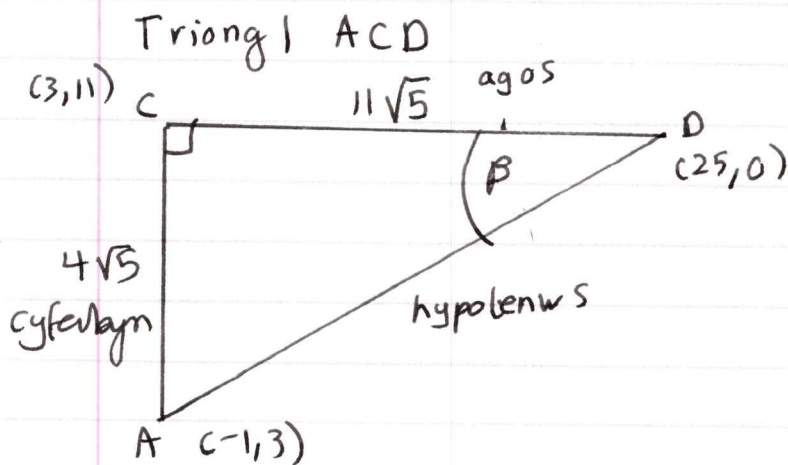 Triongl ACD
(3,11) C 11√5 agos D
(25,0)
β
4√5
cyferbyn
hypotenws
A (-1,3)